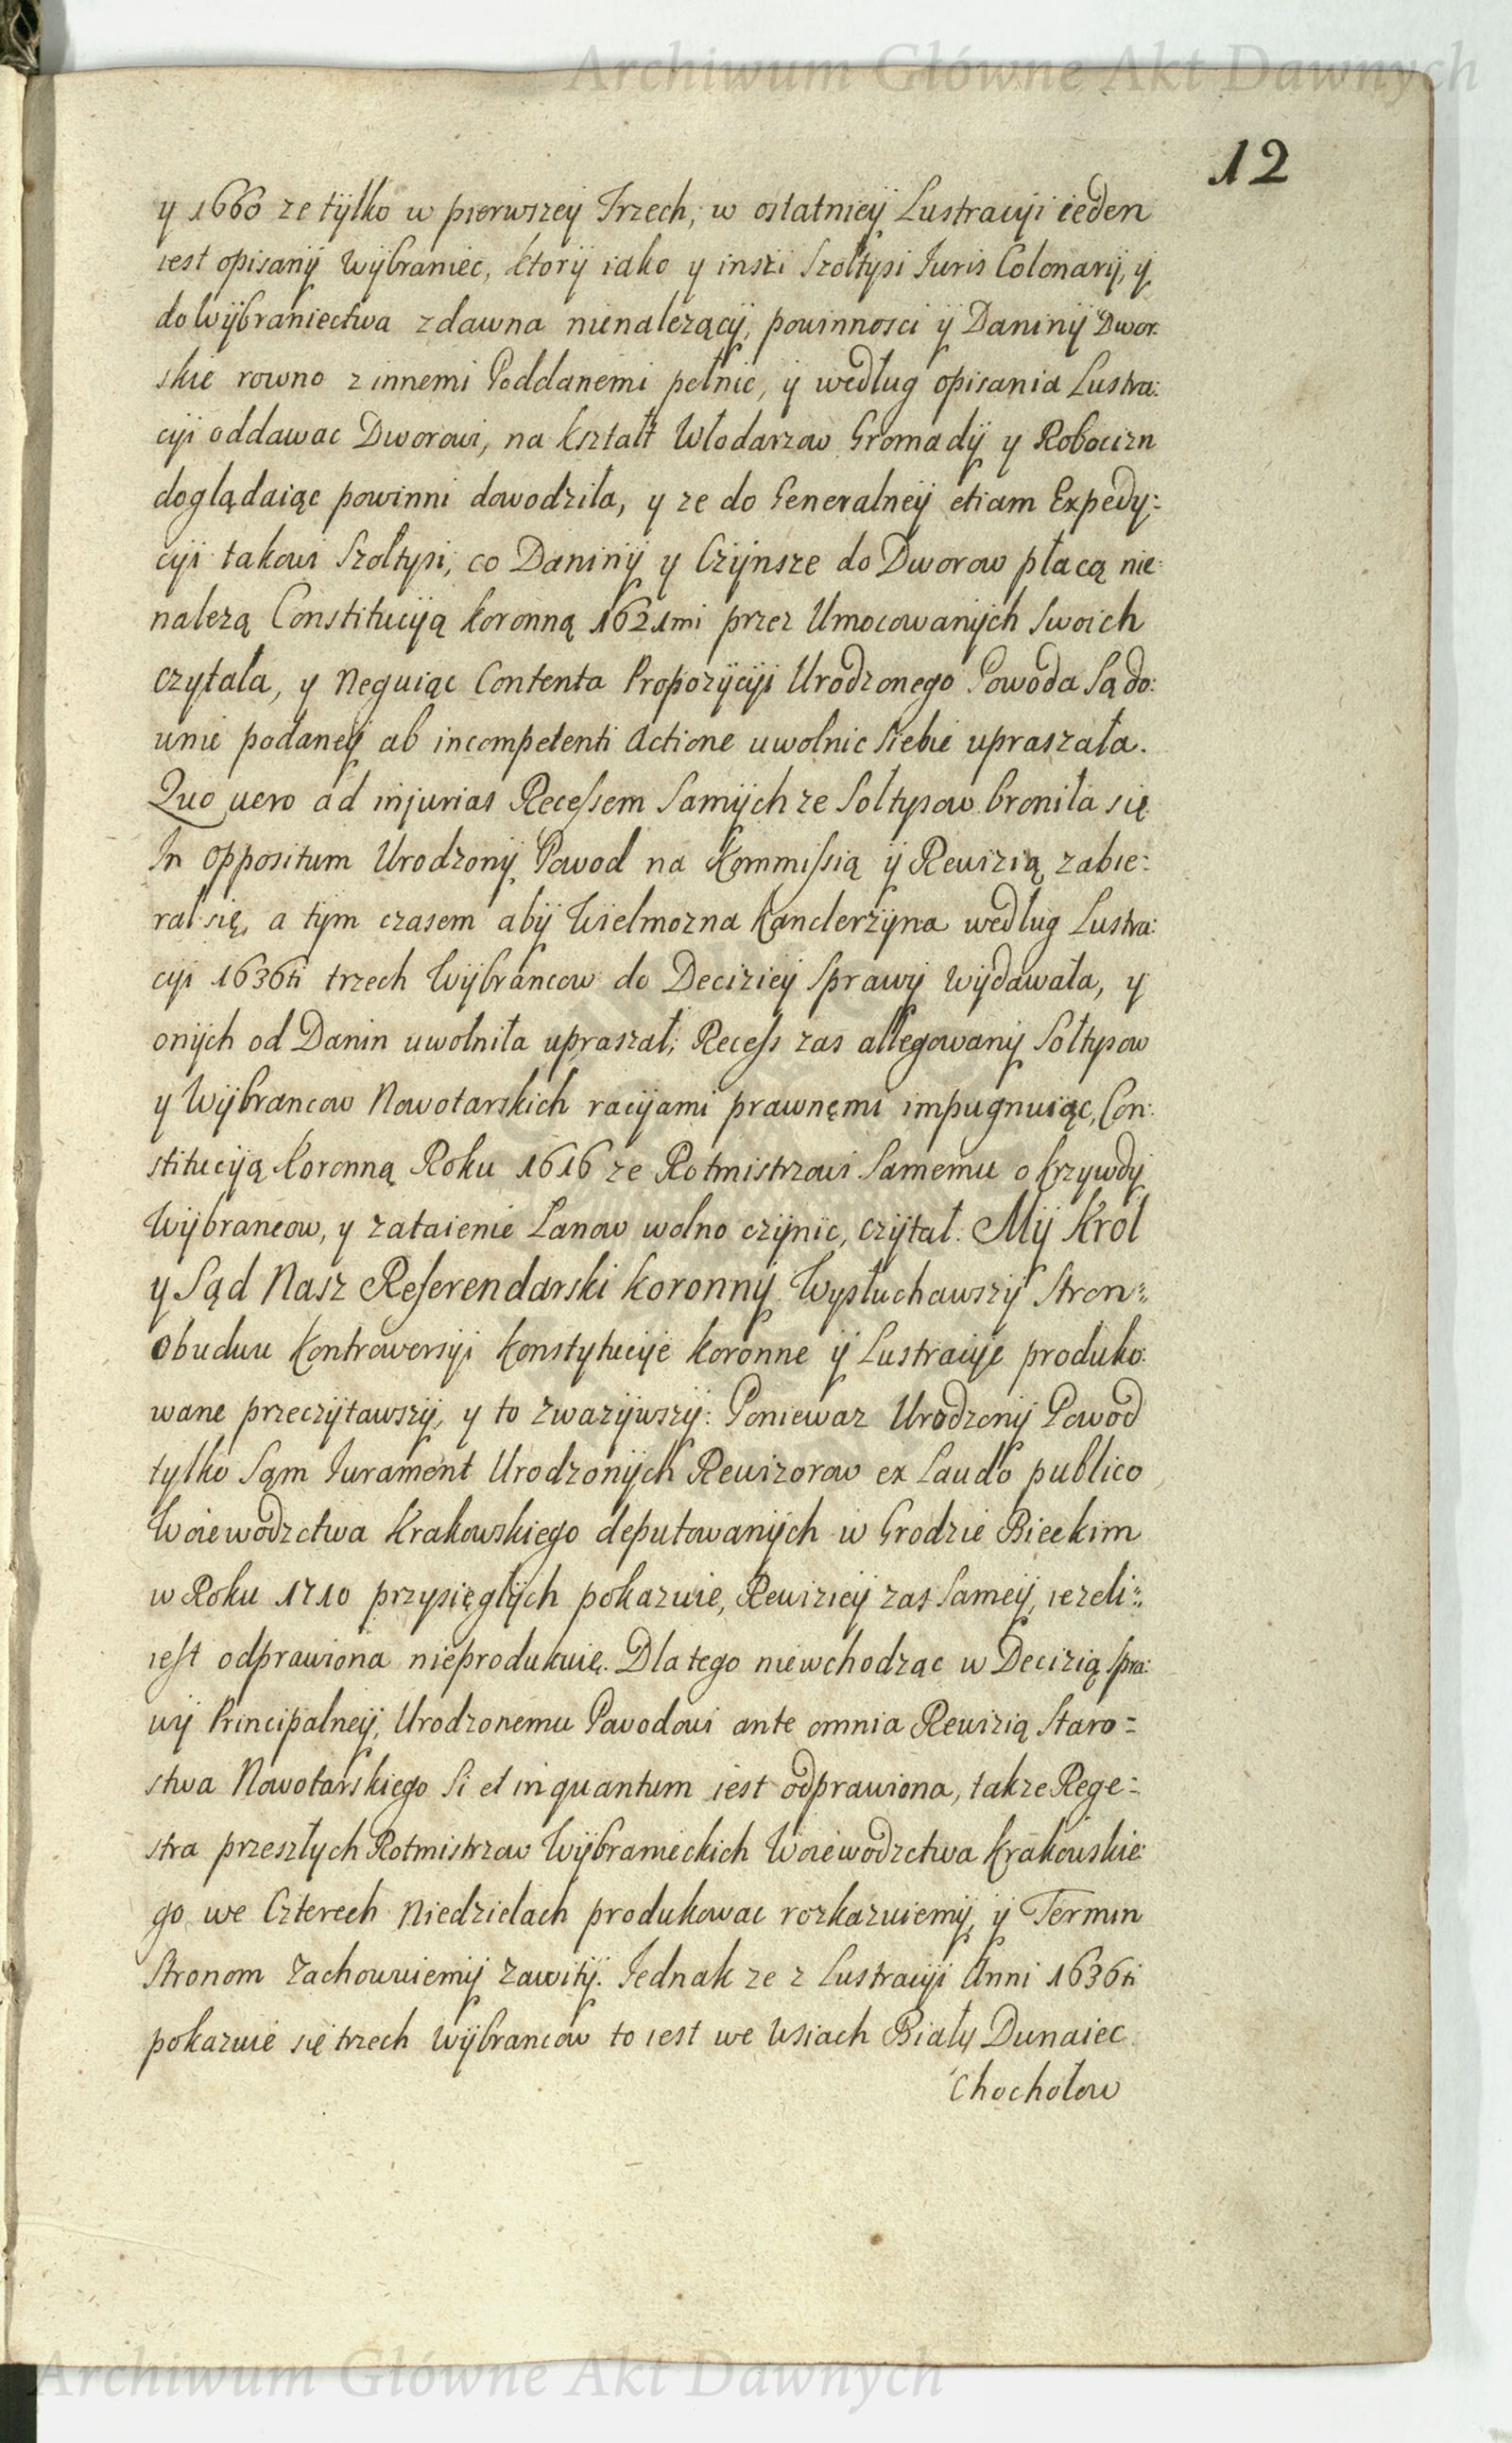 Archiwum Główne Akt Dawnych
12
y 1660 ze tylko w pierwszey Trzech, w ostatniey Lustracyi ieden
iest opisany Wybraniec, ktory iako y inszi Szołtysi Iuris Colonarij, y
do Wybraniectwa zdawna nienalezący, powinnosci y Daniny Dwor:
skie rowno z innemi Poddanemi pełnic, y według opisania Lustra:
cyi oddawac Dworowi, na kształt Włodarzow Gromady y Robocizn
doglądaiąc powinni dowodziła, y ze do Generalney etiam Expedy:
cyi takowi Szołtysi, co Daniny y Czynsze do Dworow płacą nie:
nalezą Constitucyą koronną 1621mi przez Umocowanych Swoich
czytała, y Neguiąc Contenta Propozycyi Urodzonego Powoda Sądo:
wnie podaney ab incompetenti Actione uwolnic Siebie upraszała.
Quo vero ad injurias Recessem Samychze Sołtysow broniła się
In oppositum Urodzony Powod na Kommissią y Rewizią zabie:
rał się, a tym czasem aby Wielmozna Kanclerzyna według Lustra:
cyi 1636ti trzech Wybrancow do Deciziey Sprawy wydawała, y
onych od Danin uwolniła upraszał; Recess zas allegowany Sołtysow
y Wybrancow Nowotarskich racyami prawnęmi impugnuiąc, Con:
stitucyą Koronną Roku 1616 ze Rotmistrzowi Samemu o krzywdy
Wybrancow, y zataienie Łanow wolno czynic, czytał. My Krol
y Sąd Nasz Referendarski koronny Wysłuchawszy Stron:
Obudwu Kontrowersyi Konstytucye koronne y Lustracye produko:
wane przeczytawszy, y to zwazywszy: Poniewaz Urodzony Powod
tylko Sąm Iurament Urodzonych Rewizorow ex Laudo publico
Woiewodztwa Krakowskiego deputowanych w Grodzie Bieckim
w Roku 1710 przysięgłych pokazuie, Rewiziey zas Samey, iezeli:
iest odprawiona nieprodukuię. Dlatego niewchodząc w Decizią Spra:
wy Principalney, Urodzonemu Powodowi ante omnia Rewizią Staro=
stwa Nowotarskiego Si et inquantum iest odprawiona, takze Rege=
stra przeszłych Rotmistrzow Wybranieckich Woiewodztwa Krakowskie:
go we Czterech Niedzielach produkowac rozkazuiemy, y Termin
Stronom Zachowuiemy zawity. Jednak ze z Lustracyi Anni 1636ti
pokazuie się trzech Wybrancow to iest we Wsiach Biały Dunaiec
Chochołow
Archiwum Główne Akt Dawnych